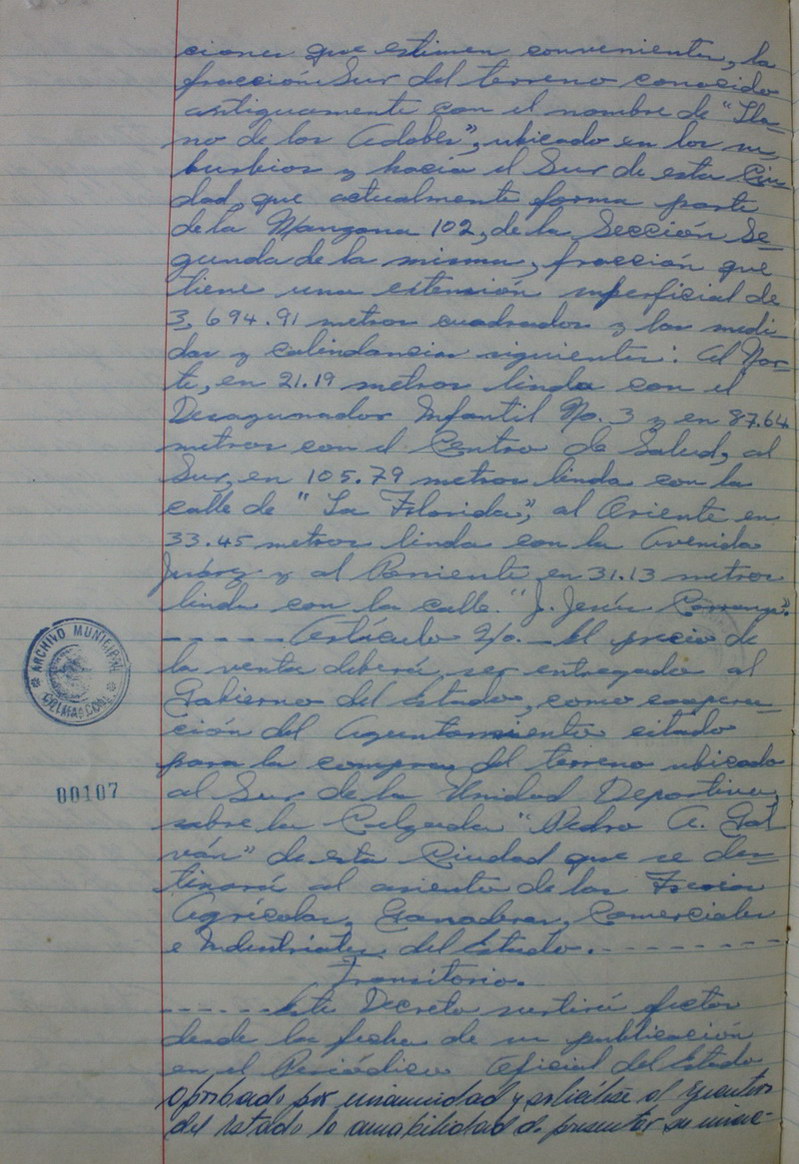 ciones que estimen conveniente, la
fracción Sur del terreno conocido
antiguamente con el nombre de "Lla-
no de los Adobes", ubicado en los su-
burbios y hacia el Sur de esta Ciu-
dad, que actualmente forma parte
de la Manzana 102, de la Sección Se-
gunda de la misma, fracción que
tiene una extensión superficial de
3,694.91 metros cuadrados y las medi-
das y colindancias siguientes: Al Nor-
te, en 21.19 metros linda con el
Desayunador Infantil No. 3 y en 87.64
metros con el Centro de Salud, al
Sur, en 105.79 metros linda con la
calle de "La Florida", al Oriente en
33.45 metros linda con la Avenida
Juárez y al Poniente en 31.13 metros
linda con la calle "J. Jesús Carranza".
- - - - - Artículo 2/o. - El precio de
la venta deberá ser entregado al
Gobierno del Estado, como coopera-
ción del Ayuntamiento citado
para la compra del terreno ubicado
al Sur de la Unidad Deportiva,
sobre la Calzada "Pedro A. Gal
ván" de esta Ciudad que se des-
tinará al asiento de las Ferias
Agrícolas, Ganaderas, Comerciales
e Industriales del Estado. - - - - - - - -
Transitorio.
- - - - - Este Decreto surtirá efectos
desde la fecha de su publicación
en el Periódico Oficial del Estado
aprobado por unanimidad y solicítese al Ejecutivo
del Estado la amabilidad de presentar su
ARCHIVO MUNICIPAL
COLIMA, COL.
00107